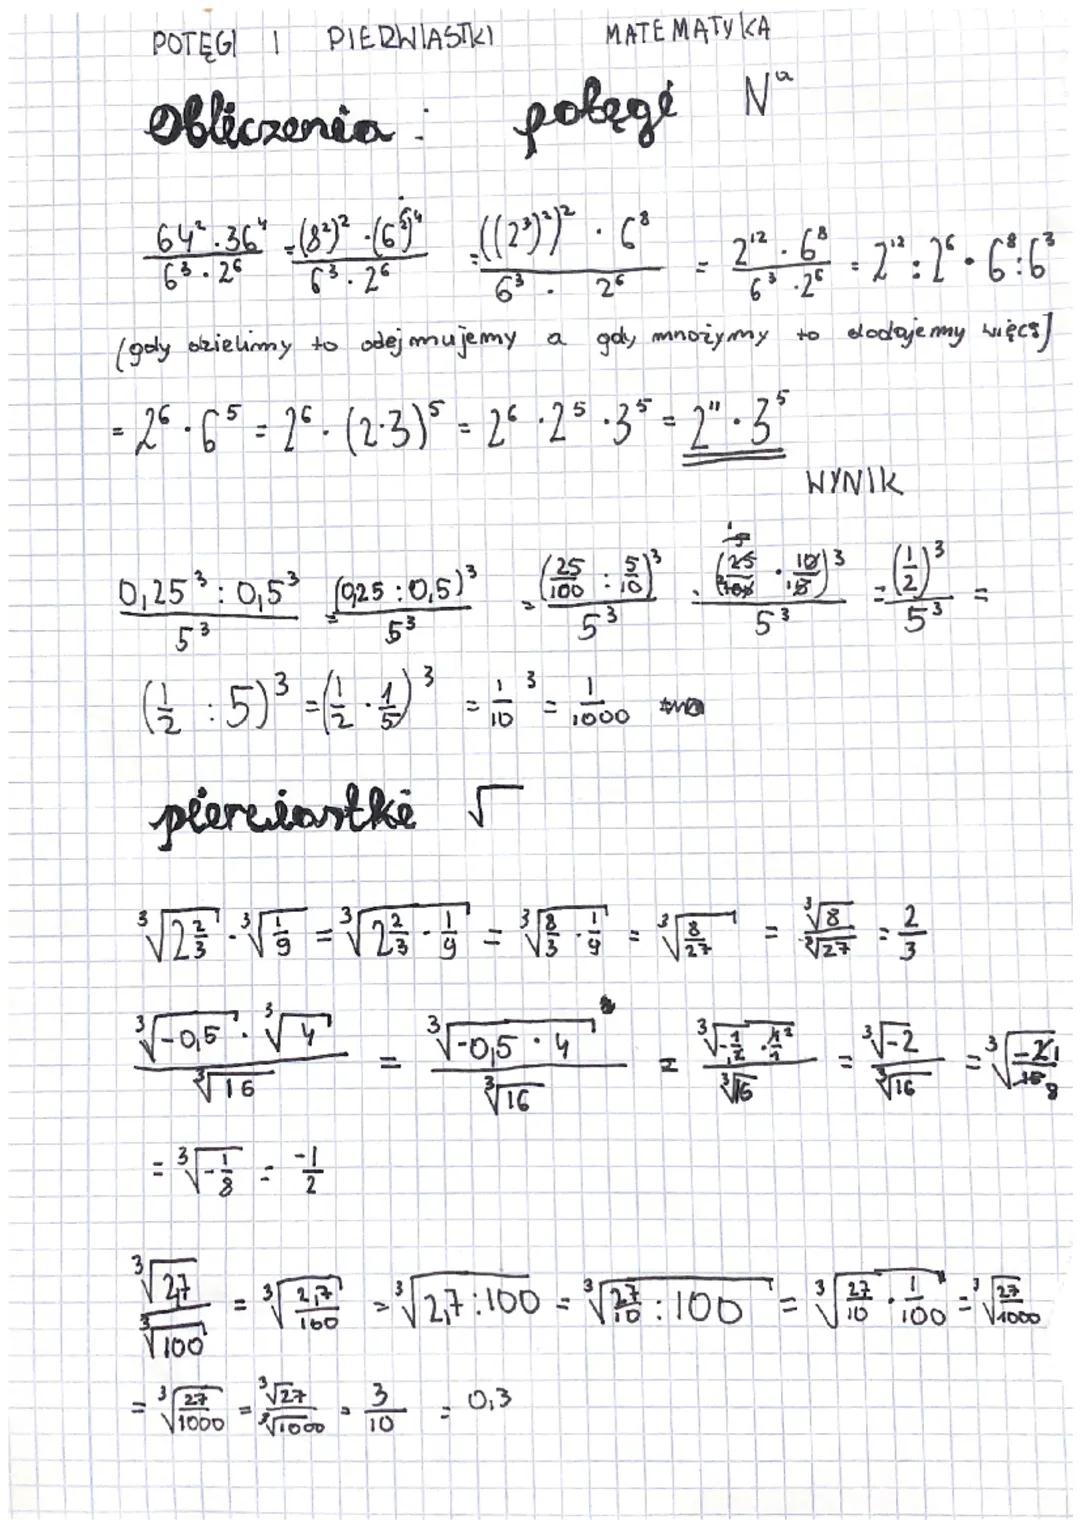 POTĘGI I PIERWIASTKI MATEMATYKA
Obliczenia: potęgi Nᵃ
(64² · 36⁴)/(6³ · 2⁶) = ((8²)² · (6²)⁴)/(6³ · 2⁶) = (((2³)²)² · 6⁸)/(6³ · 2⁶) = (2¹² · 6⁸)/(6³ · 2⁶) = 2¹² : 2⁶ · 6⁸ : 6³
(gdy dzielimy to odejmujemy a gdy mnożymy to dodajemy więcj)
= 2⁶ · 6⁵ = 2⁶ · (2·3)⁵ = 2⁶ · 2⁵ · 3⁵ = 2¹¹ · 3⁵
WYNIK
(0,25³ : 0,5³)/5³ = (0,25 : 0,5)³/5³ = (25/100 : 5/10)³/5³ = (25/100 · 10/5)³/5³ = (1/2)³/5³ =
(1/2 : 5)³ = (1/2 · 1/5)³ = 1/10³ = 1/1000
pierwiastki √
³√(2 2/3) · ³√(1/9) = ³√(2 2/3 · 1/9) = ³√(8/3 · 1/9) = ³√(8/27) = ³√8/³√27 = 2/3
(³√-0,5 · ³√4)/³√16 = ³√(-0,5 · 4)/³√16 = ³√(-1/2 · 4/1)/³√16 = ³√-2/³√16 = ³√(-2/16)
= ³√(-1/8) = -1/2
³√2,7/³√100 = ³√(2,7/100) = ³√(2,7:100) = ³√(27/10 : 100) = ³√(27/10 · 1/100) = ³√(27/1000)
= ³√(27/1000) = ³√27/³√1000 = 3/10 = 0,3